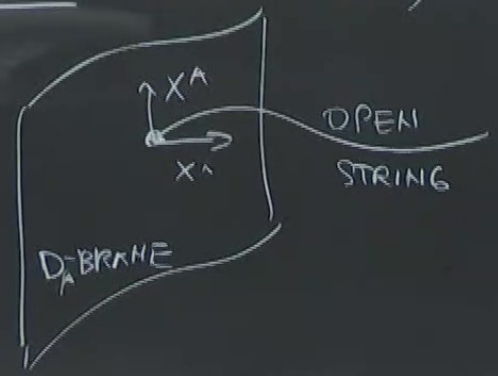 X^A
OPEN
X^
STRING
D_A-BRANE